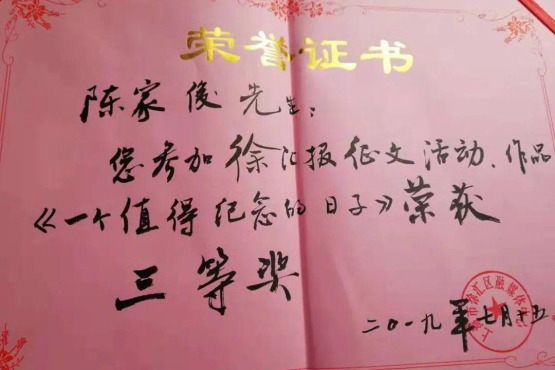 荣誉证书
陈家俊先生：
您参加徐汇报征文活动、作品
《一个值得纪念的日子》荣获
三等奖
上海市徐汇区融媒体中心
二〇一九年七月十五